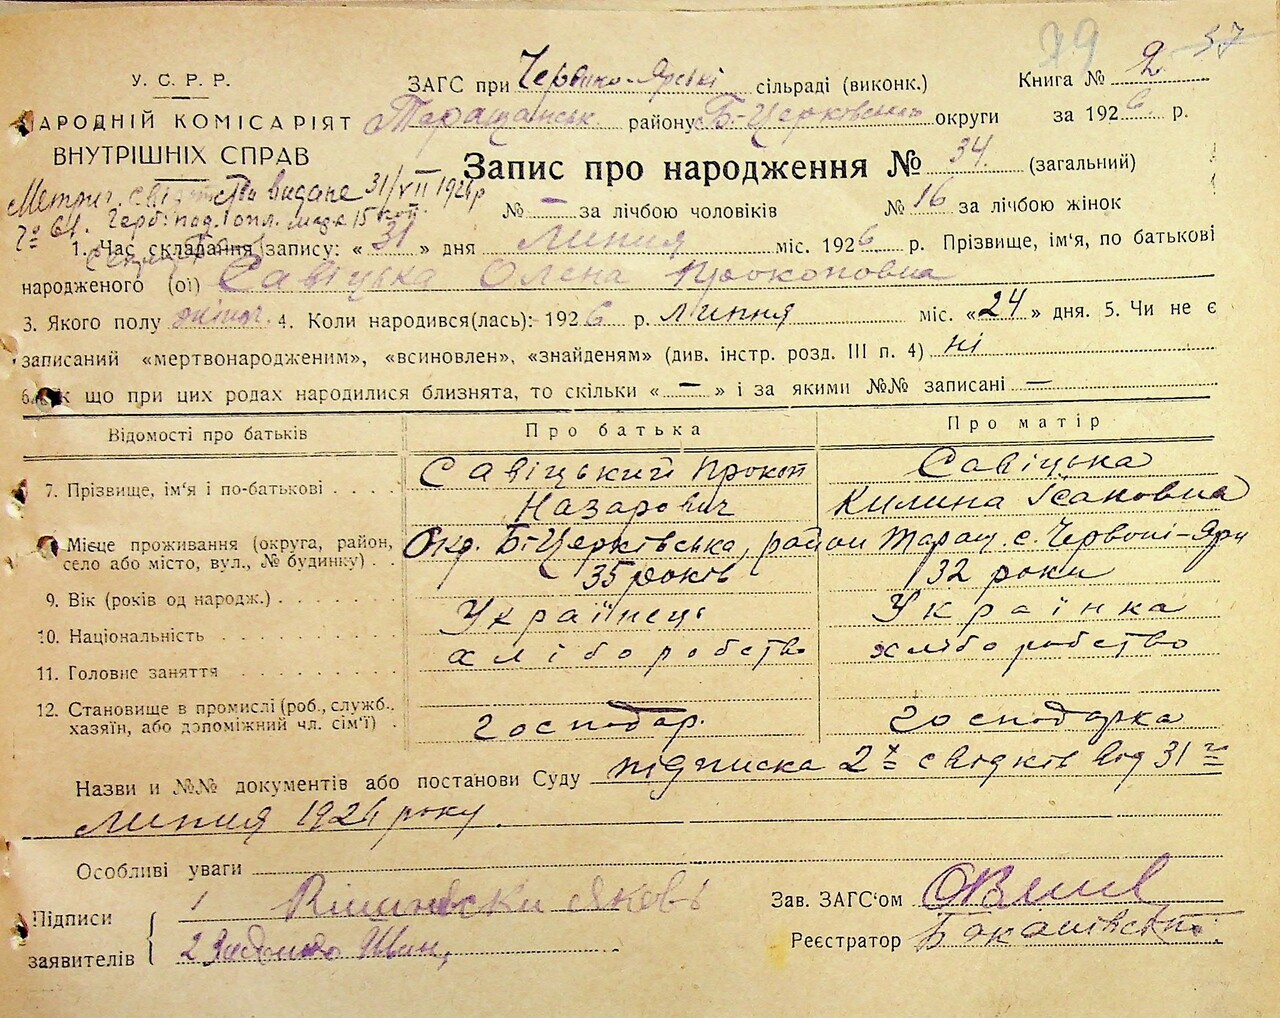 79 2 37
У. С. Р. Р.
ЗАГС при Червоно-Ярські сільраді (виконк.) Книга №
НАРОДНІЙ КОМІСАРІЯТ Таращанськ району Б-Церківськ округи за 1926 р.
ВНУТРІШНІХ СПРАВ
Запис про народження № 34. (загальний)
Метрич. свідотство видане 31/VII 1926 р
№ — за лічбою чоловіків № 16 за лічбою жінок
1. Час складання запису: « 31 » дня Липня міс. 1926 р. Прізвище, ім'я, по батькові
народженого (ої) Савіцька Олена Прокоповна
3. Якого полу жіноч. 4. Коли народився(лась): 1926 р. липня міс. «24» дня. 5. Чи не є
записаний «мертвонародженим», «всиновлен», «знайденям» (див. інстр. розд. III п. 4) ні
6. Як що при цих родах народилися близнята, то скільки « — » і за якими №№ записані —
Відомості про батьків Про батька Про матір
7. Прізвище, ім'я і по-батькові . . . . Савіцький Прокоп Назарович Савіцька Килина Ісаковна
Місце проживання (округа, район, село або місто, вул., № будинку) . . Окр. Б-Церківська, район Таращ. с. Червоні-Яри
9. Вік (років од народж.) . . . . . . . 35 років 32 роки
10. Національність . . . . . . . . . . Українець Українка
11. Головне заняття . . . . . . . . . хліборобство хліборобство
12. Становище в промислі (роб., служб., хазяїн, або допоміжний чл. сім'ї) . господар. господарка
Назви и №№ документів або постанови Суду підписка 2х свідків від 31го
липня 1926 року.
Особливі уваги
Підписи заявителів
1
2 Иван,
Зав. ЗАГС'ом
Реєстратор